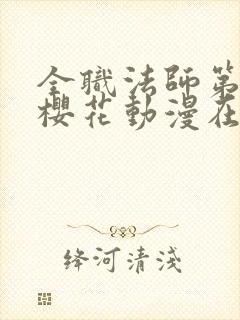 全職法師第
櫻花動漫在
絳河清淺